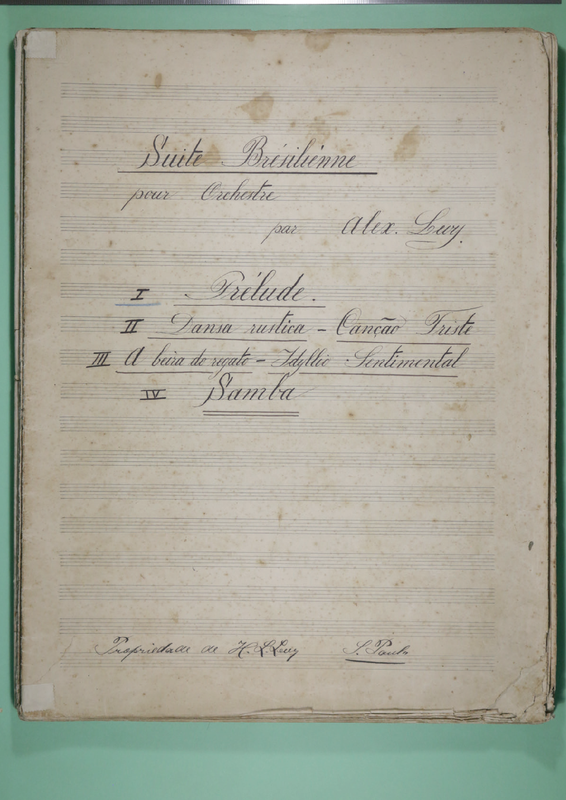 Suite Brésiliénne
pour Orchestre
par Alex. Levy.
I - Prélude.
II Dansa rustica - Canção Triste
III A beira do regato - Idyllio - Sentimental
IV Samba
Propriedade de H. L. Levy S. Paulo